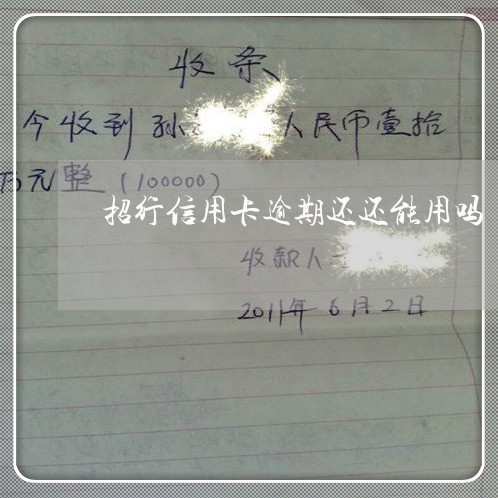 收条
今收到孙 人民币壹拾
万元整(100000)
招行信用卡逾期还还能用吗
收款人
2011年6月2日